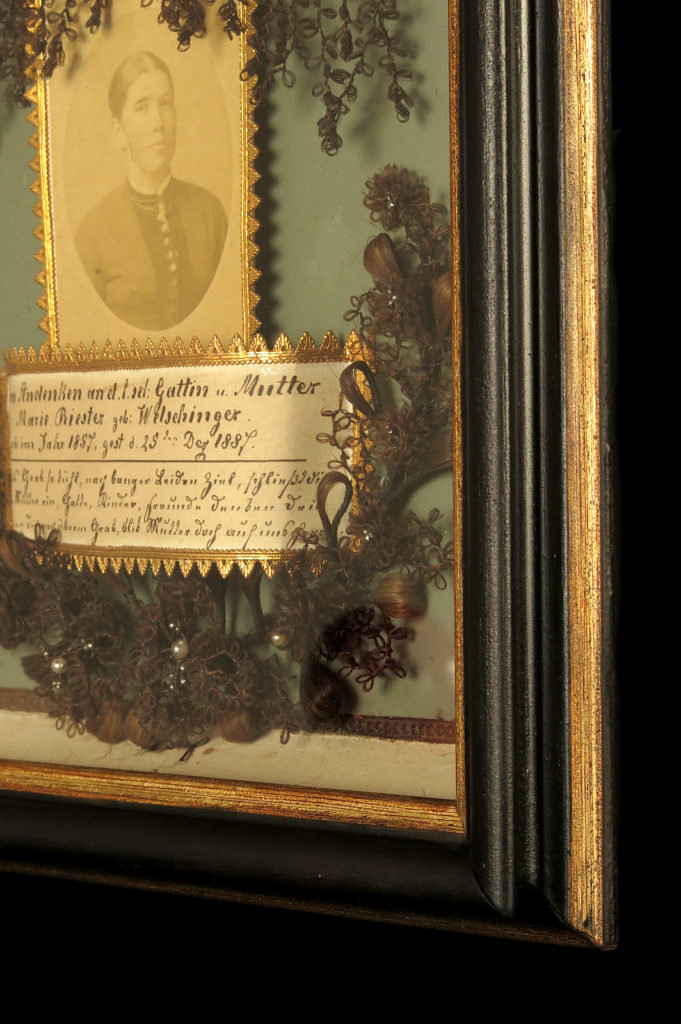 Andenken an d. t. sel: Gattin u. Mutter
Marie Riester geb: Welschinger.
im Jahr 1857, gest d. 25ten Dez 1887.
Grab so kühl, nach banger Leiden Ziel, schließt die
Mutter ein, Gatte, Kinder, Freunde denken dein
überm Grab, blick Mutter doch auf uns